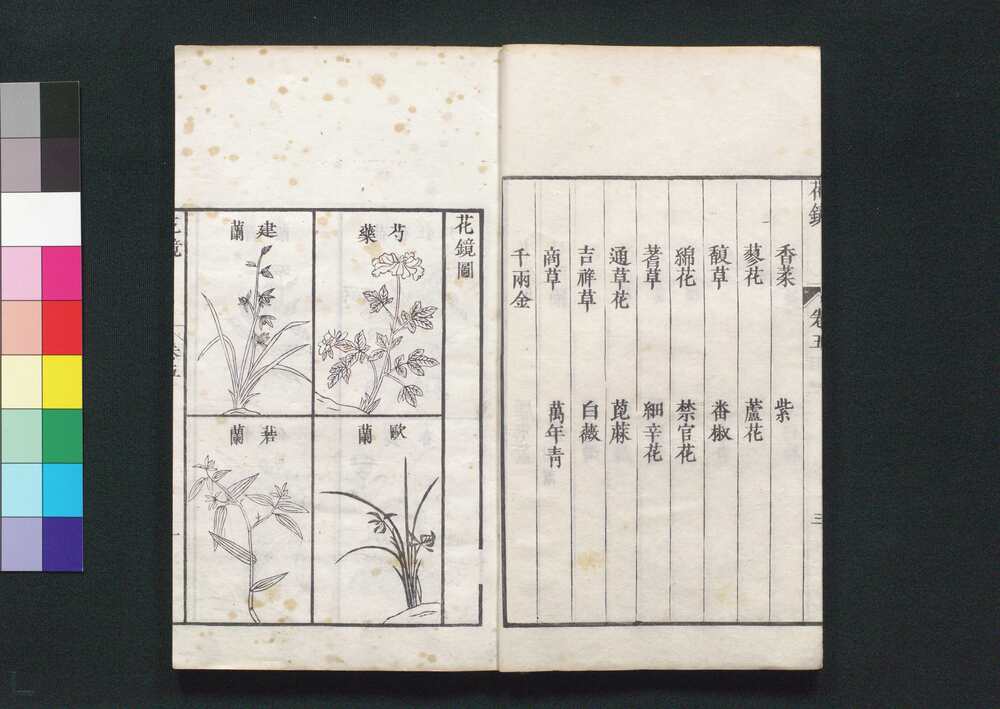 花鏡
卷五
三
香菜
紫
蓼花
蘆花
馥草
番椒
綿花
禁宮花
蓍草
細辛花
通草花
萞麻
吉祥草
白薇
商草
萬年青
千兩金
花鏡圖
芍藥
建蘭
歐蘭
箬蘭
花鏡
卷五
一